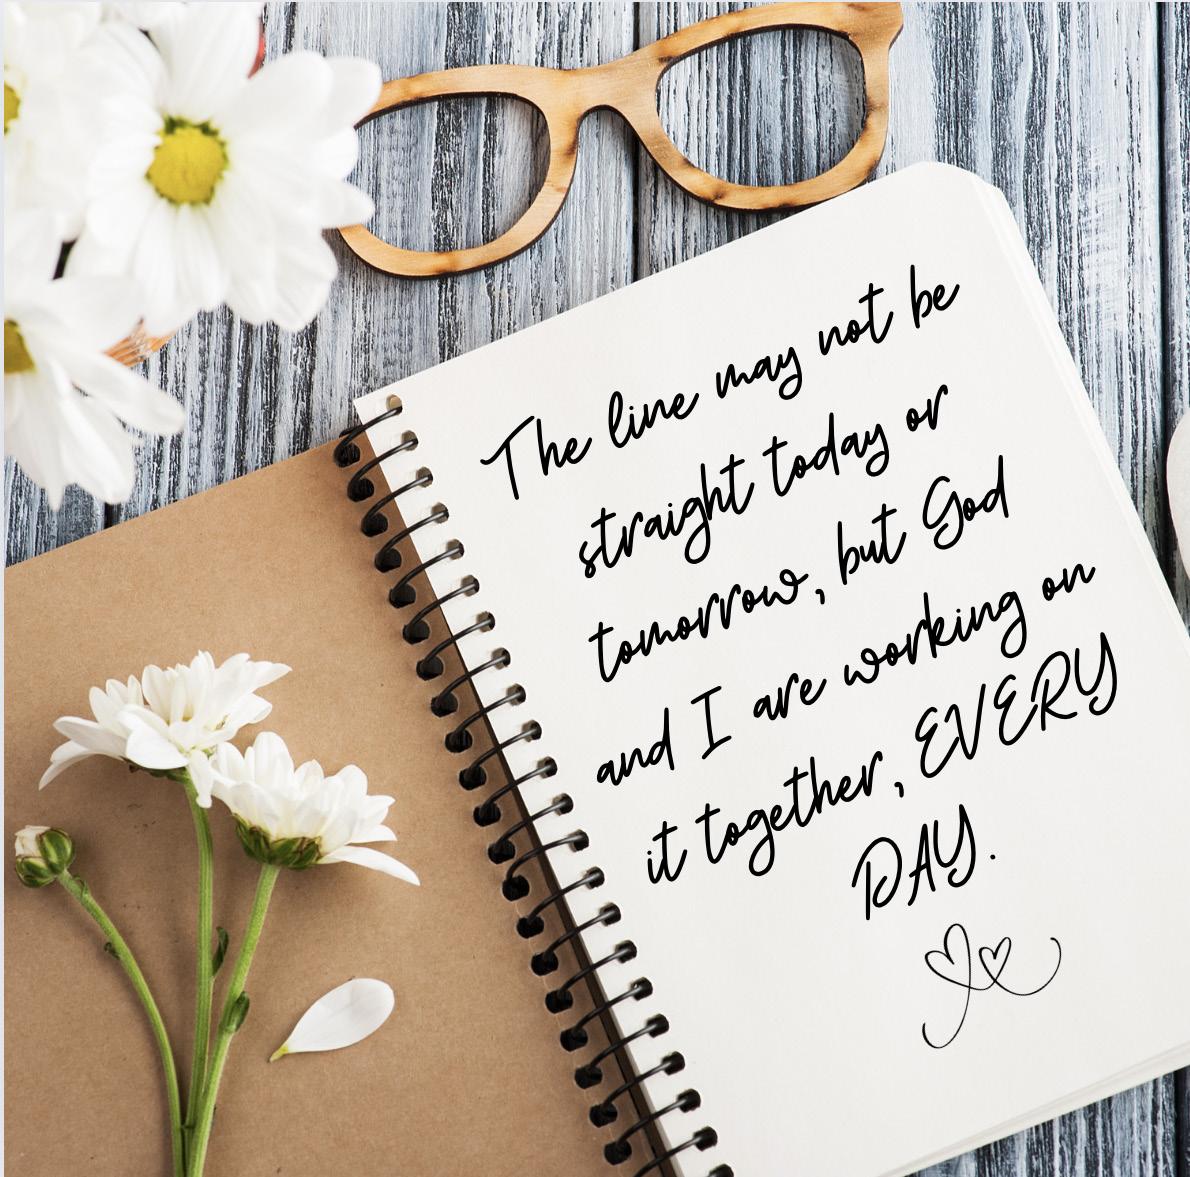 The line may not be
straight today or
tomorrow, but God
and I are working on
it together, EVERY
DAY.